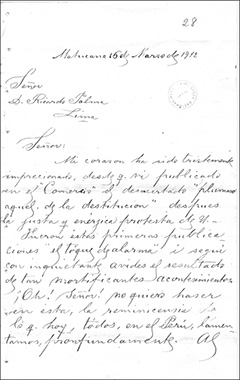 28
Matucana 16 de Marzo de 1912
Señor
D. Ricardo Palma
Lima
Señor:
Mi corazon ha sido tristemente
impresionado, desde q. vi publicado
en el "Comercio" el desacertado "plumazo
aquel; de la destitucion" despues
la justa y enérgica protesta de U.—
Fueron éstas primeras publica
ciones "el toque de alarma" i segui
con inquietante avides el resultado
de tan mortificantes acontecimientos
¡Oh! Señor! no quiero haser
en esta, la reminiscencia
lo q. hoy, todos, en el Perú, lamen
tamos, pronfundamente. Al